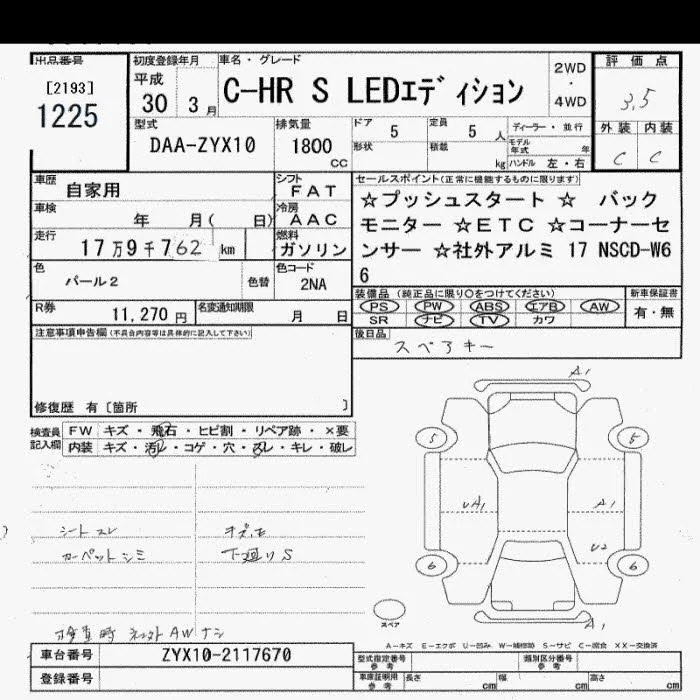 出品番号
[2193]
1225
初度登録年月
平成
30 3月
車名・グレード
C-HR S LEDエディション
2WD
・
4WD
評価点
3.5
外装 内装
C C
型式
DAA-ZYX10
排気量
1800
CC
ドア 5
定員 5 人
形状
積載 kg
ディーラー・並行
モデル年式 年
ハンドル 左・右
車歴
自家用
シフト
FAT
車検
年 月( 日)
冷房
AAC
走行
17万9千762 km
燃料
ガソリン
色
パール2
色替
色コード
2NA
R券
11,270円
名変通知期限
月 日
セールスポイント(正常に機能するものに限ります)
☆プッシュスタート ☆ バック
モニター ☆ETC ☆コーナーセ
ンサー ☆社外アルミ 17 NSCD-W6
6
装備品 (純正品に限り○をつけてください)
新車保証書
PS PW ABS エアB AW
有・無
SR ナビ TV カワ
後日品
スペアキー
注意事項申告欄(不具合内容等は具体的に記入して下さい)
修復歴 有〔箇所 〕
検査員
記入欄
FW キズ・飛石・ヒビ割・リペア跡・×要
内装 キズ・汚レ・コゲ・穴・スレ・キレ・破レ
シートスレ
カーペットシミ
下廻りS
A1
5
5
UA1
A1
U2
6
6
スペア
A1
A-キズ E-エクボ U-凹み W-補修跡 S-サビ C-腐食 XX-交換済
車台番号
ZYX10-2117670
登録番号
型式指定番号
参考
類別区分番号
参考
車庫証明用
参考
長さ cm
幅 cm
高さ cm